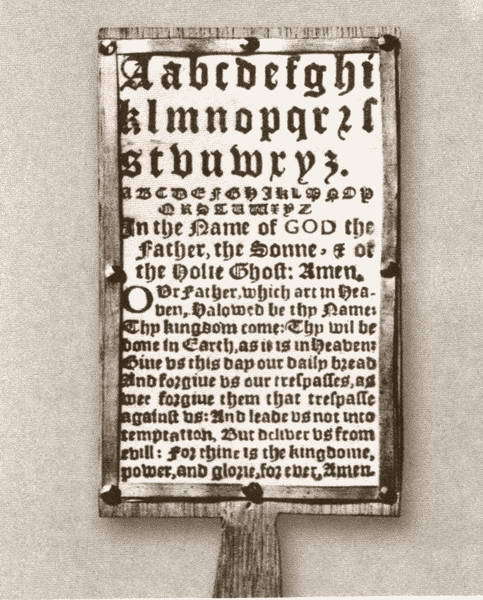 Aabcdefghi
klmnopqrꝛſ
stvuwxyz.
ABCDEFGHIKLMNOP
QRSTUWXYZ
In the Name of GOD the
Father, the Sonne, & of
the Holie Ghoſt: Amen.
OVr Father, which art in Hea-
ven, Halowed be thy Name:
Thy kingdom come: Thy wil be
done in Earth, as it is in Heaven:
Giue vs this day our daily bread
And forgiue vs our treſpaſſes, as
wee forgiue them that treſpaſſe
againſt vs: And leade vs not into
temptation, But deliver vs from
evill: For thine is the kingdome,
power, and glorie, for ever, Amen.